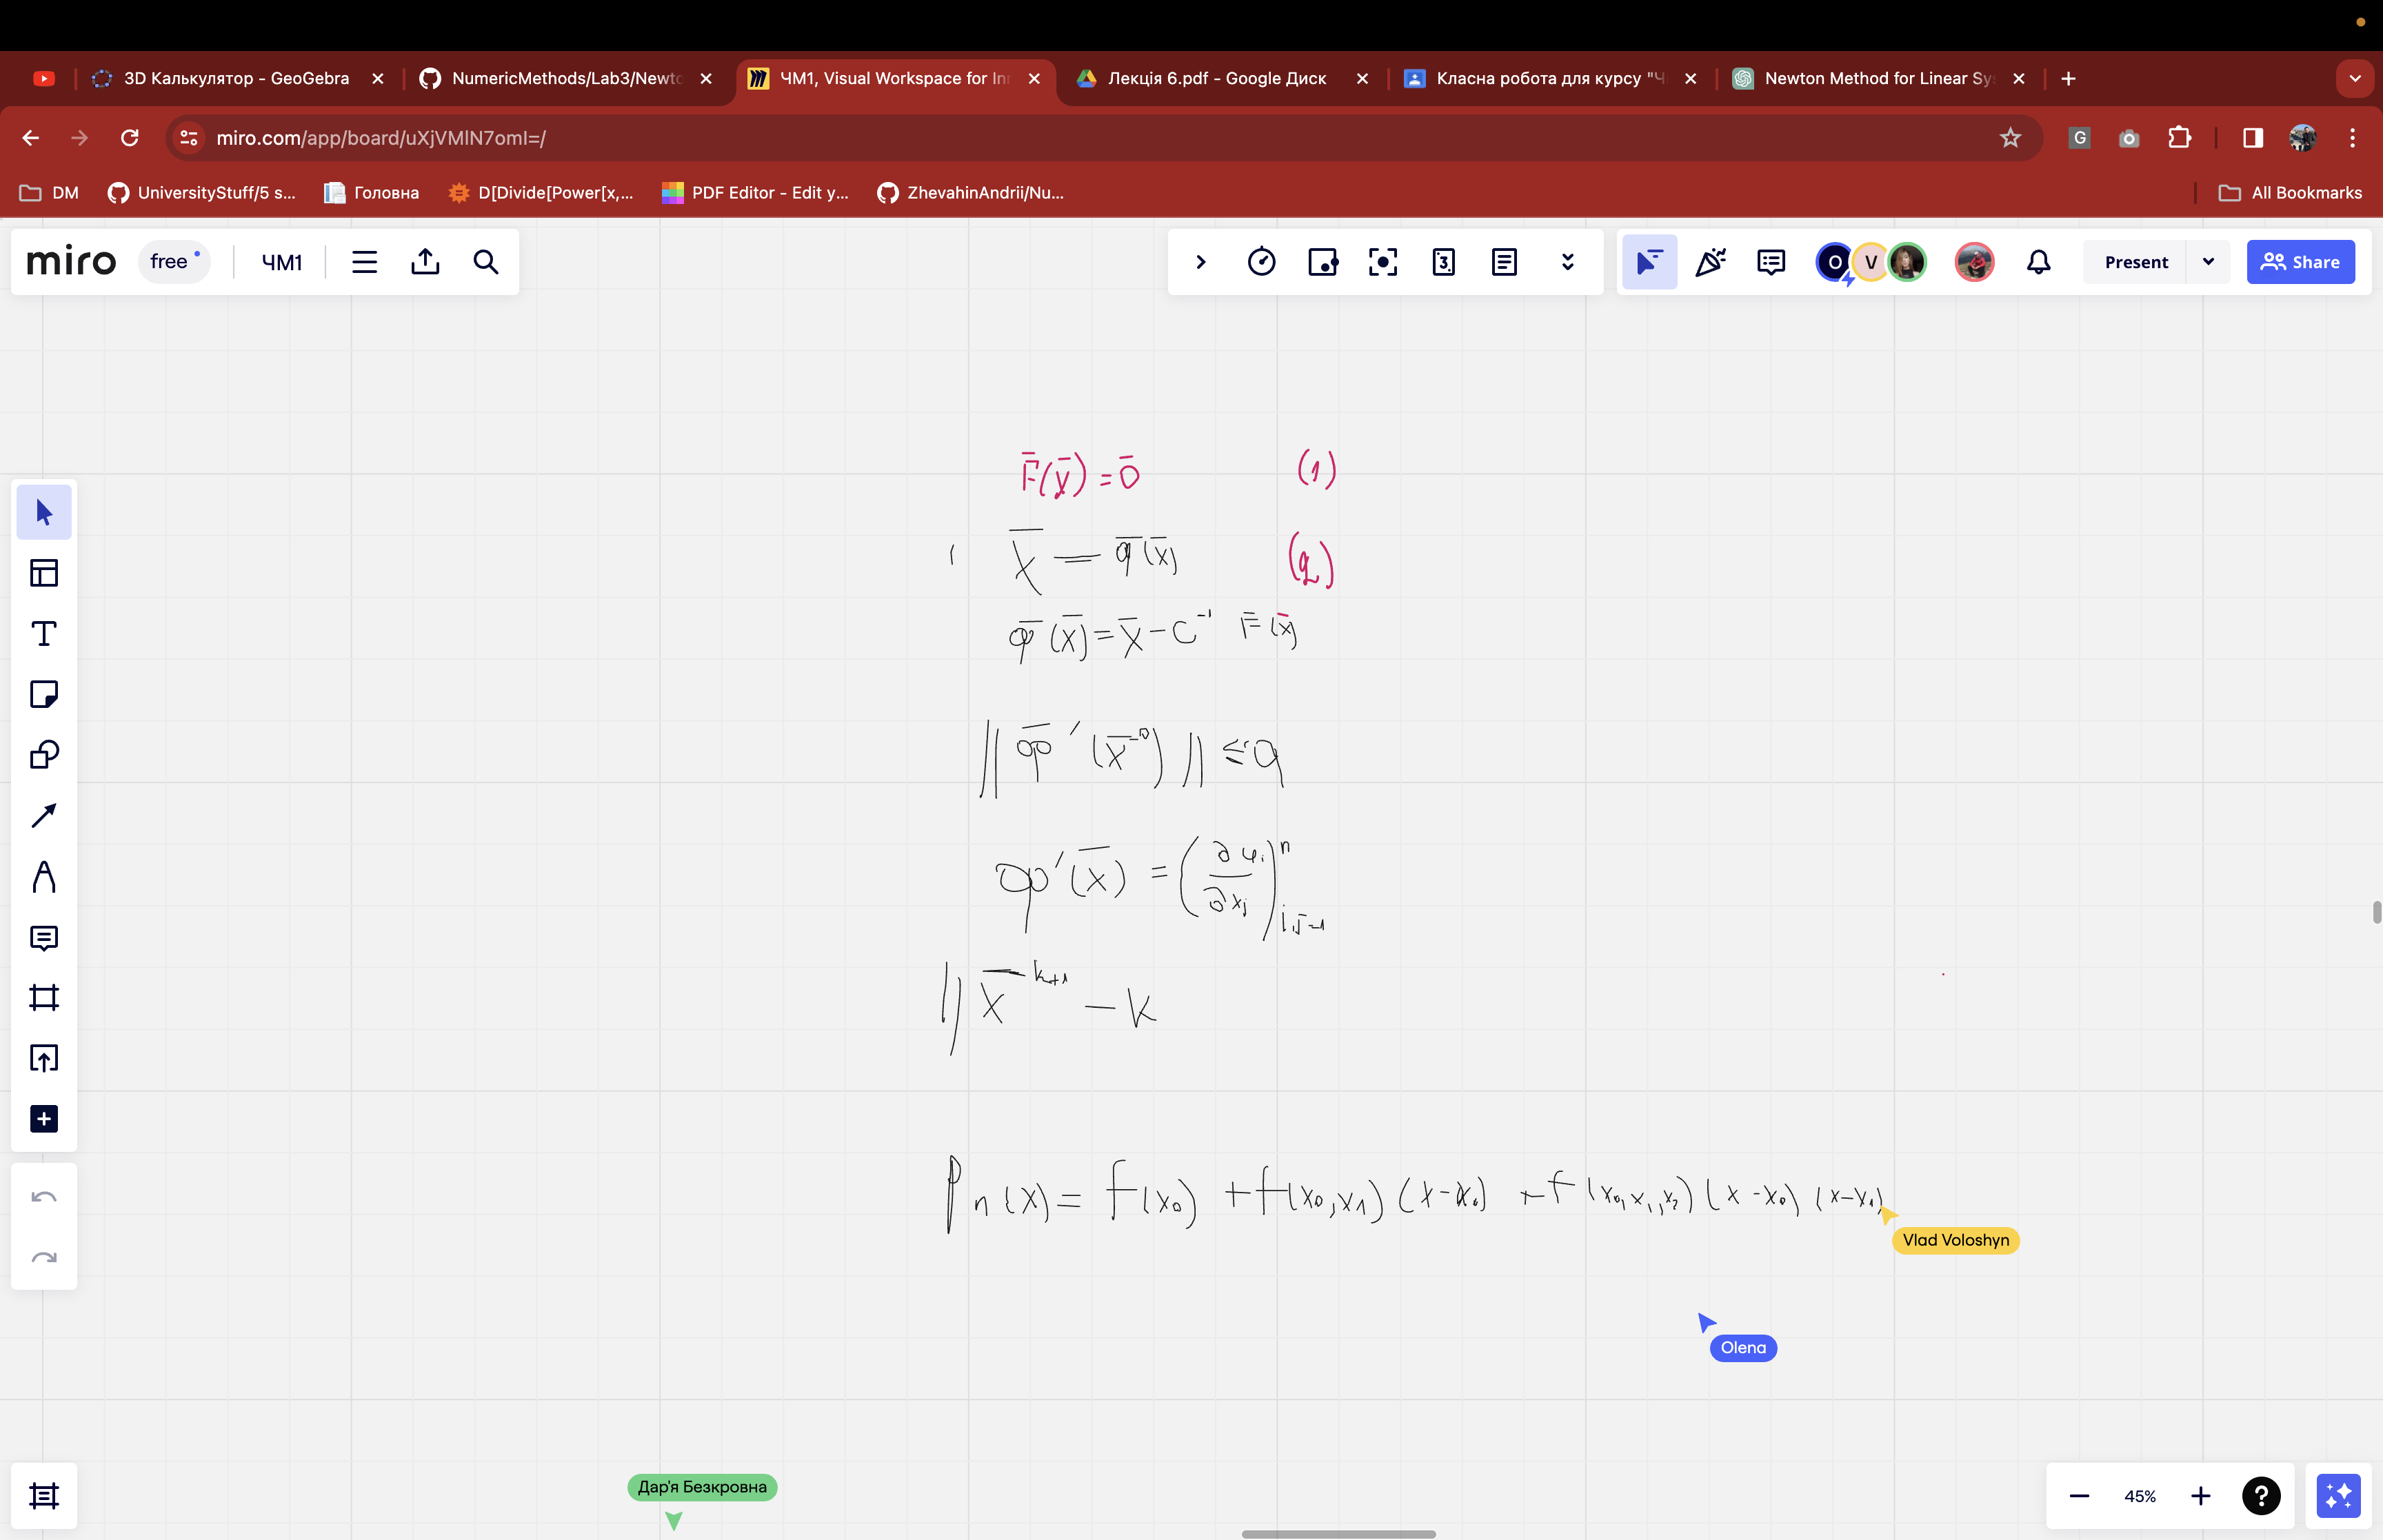 3D Калькулятор - GeoGebra
NumericMethods/Lab3/Newto
ЧМ1, Visual Workspace for Inn
Лекція 6.pdf - Google Диск
Класна робота для курсу "Ч
Newton Method for Linear Sys
miro.com/app/board/uXjVMlN7omI=/
G
DM
UniversityStuff/5 s...
Головна
D[Divide[Power[x,...
PDF Editor - Edit y...
ZhevahinAndrii/Nu...
All Bookmarks
miro
free
ЧМ1
3
O
V
Present
Share
F̅(x̅) = 0̅ (1)
x̅ = φ̅(x̅) (2)
φ̅(x̅) = x̅ - C⁻¹ F̅(x̅)
|| φ̅′(x̅⁰) || ≤ q
φ′(x̅) = (∂φᵢ/∂xⱼ)ⁿ i,j=1
|| x̅ᵏ⁺¹ - k
Pn(x) = f(x₀) + f(x₀,x₁)(x-x₀) + f(x₀,x₁,x₂)(x-x₀)(x-x₁)
Vlad Voloshyn
Olena
Дар'я Безкровна
45%
?